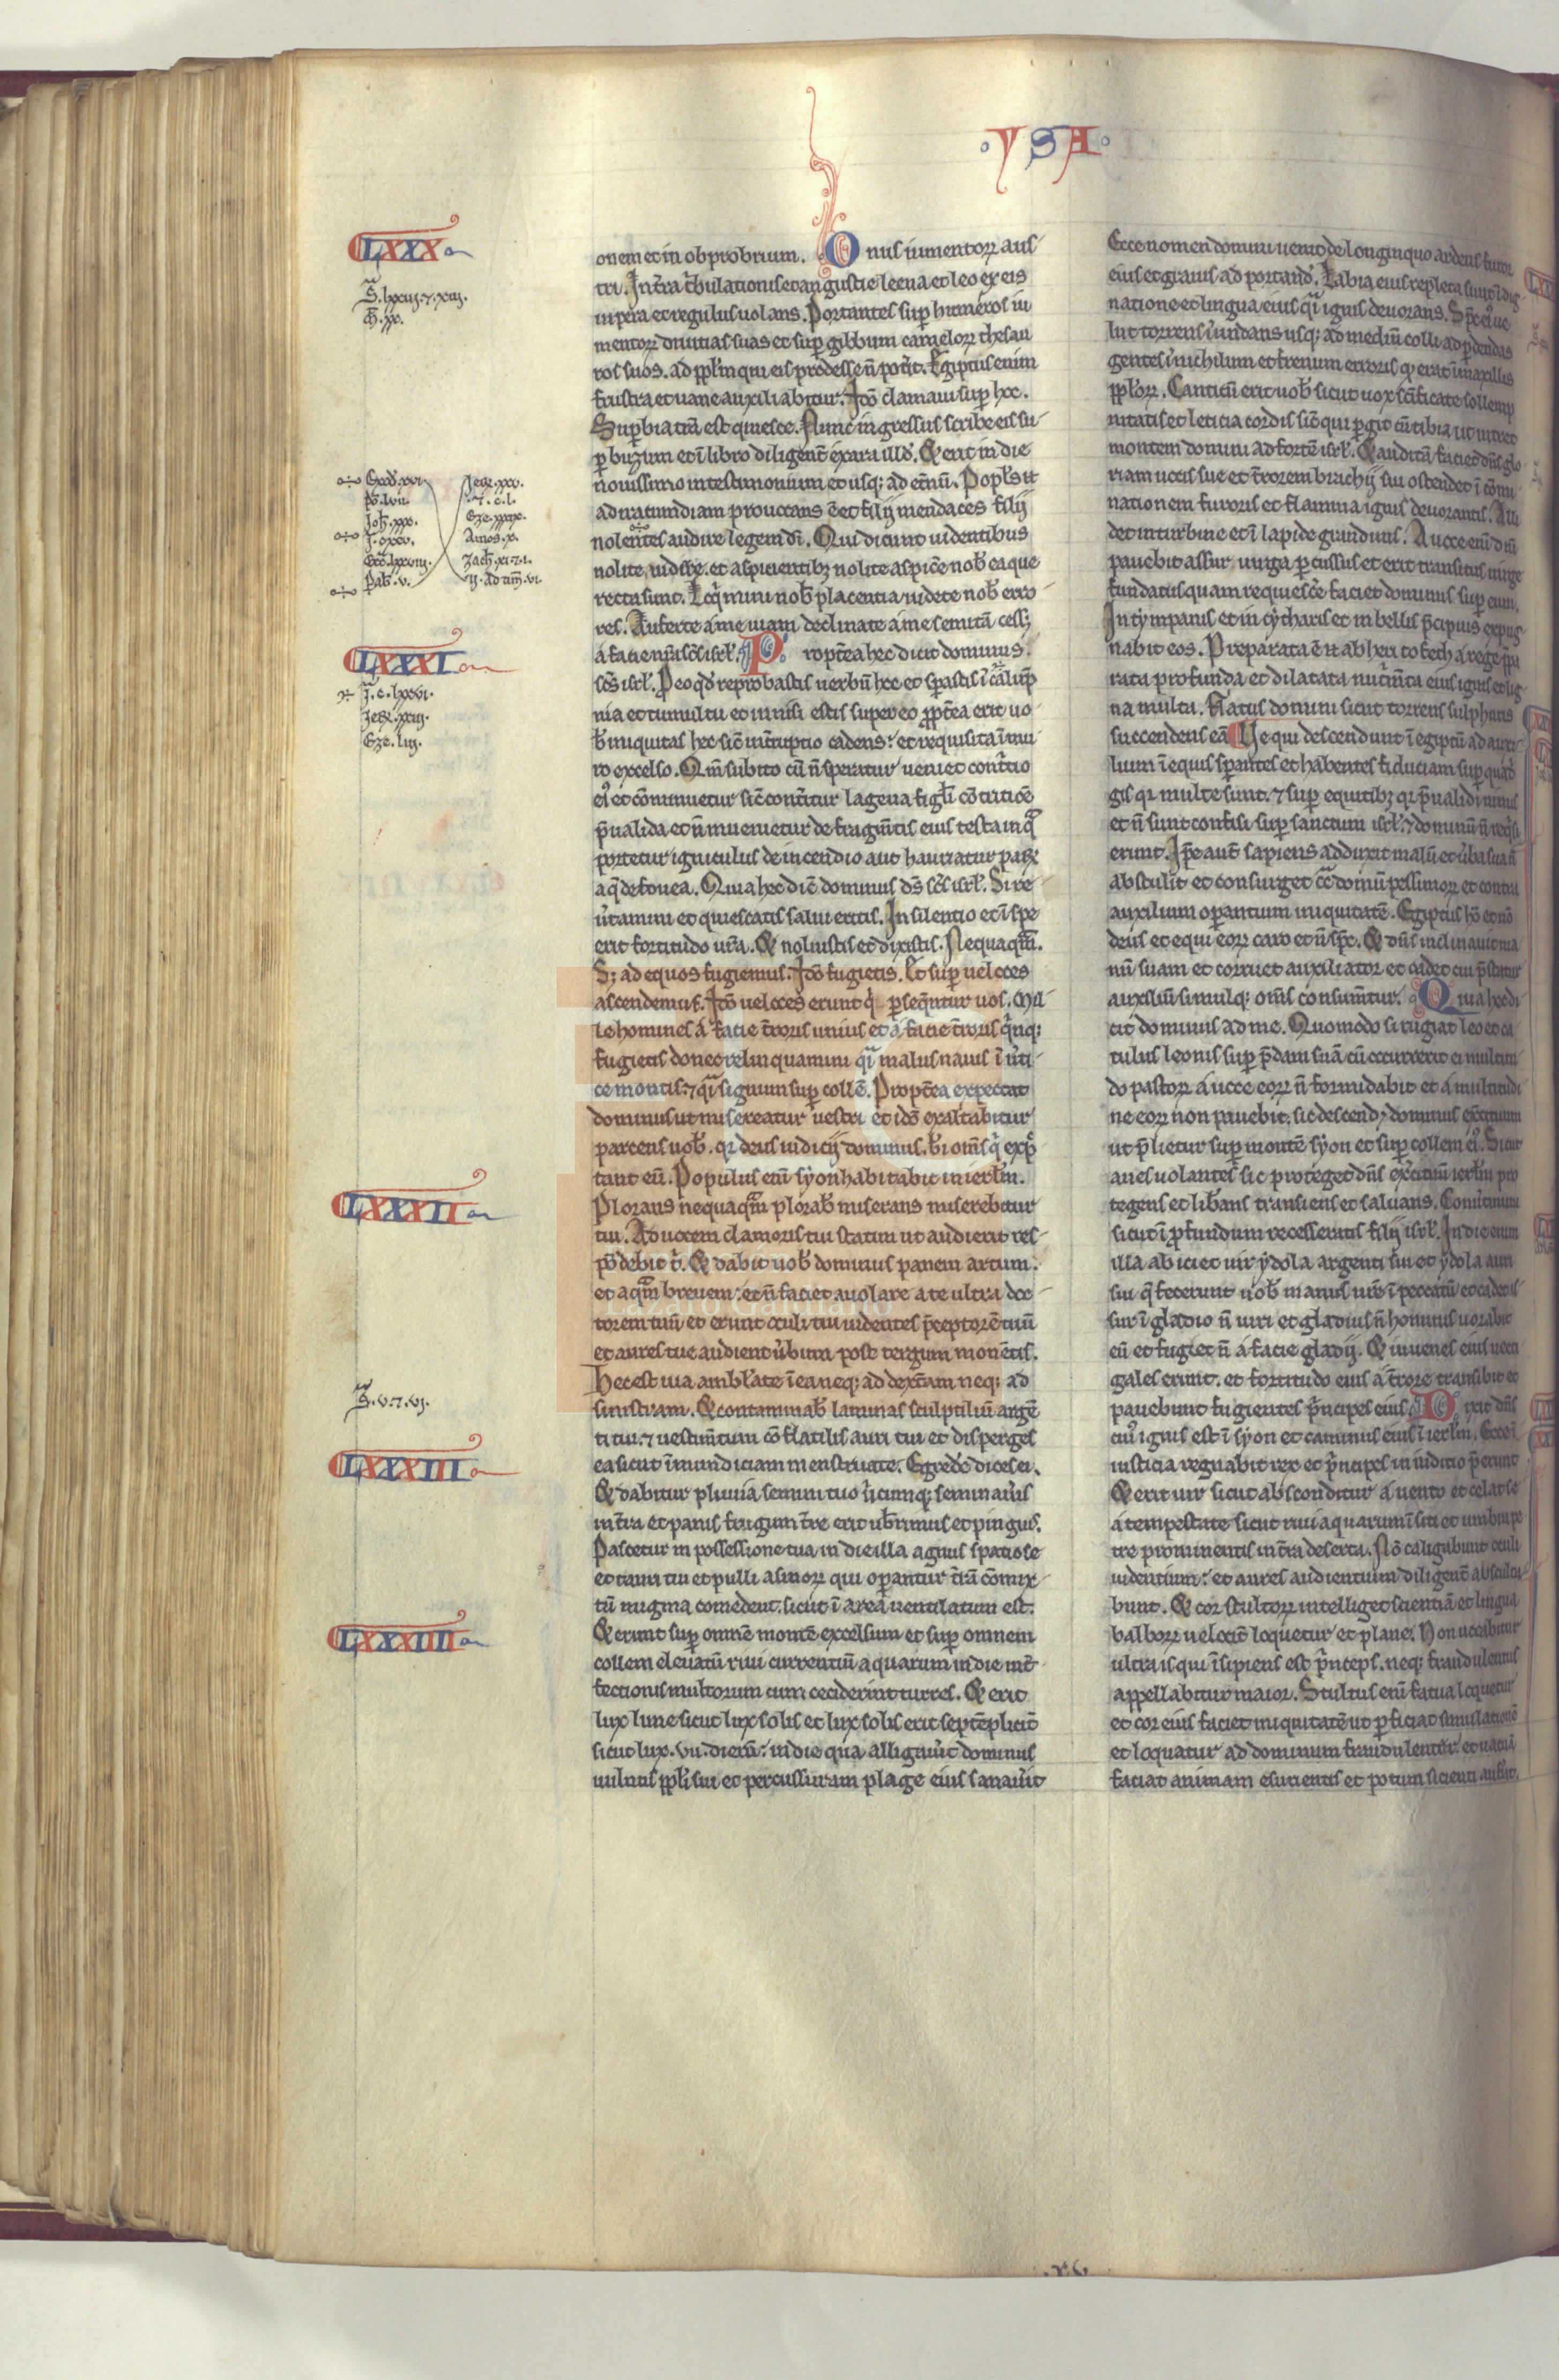 ·YSA·
LXXX
S. lxxiij. 7. xiij.
LXXXI
J. c. lxxvi.
Jeze. xxiij.
Eze. liij.
LXXXII
S. v. 7. vj.
LXXXIII
LXXXIIII
onem et in obprobrium. Onus iumentoꝝ aus
tri. In tr̄a t̄bulationis et angustie leena et leo ex eis
uipera et regulus uolans. Portantes suꝑ humeros iu
mentoꝝ diuitias suas et suꝑ gibbum cameloꝝ thesau
ros suos. ad pplm̄ qui eis prodesse n̄ pot̄it. Egiptus enim
frustra et uane auxiliabitur. Iđo clamaui suꝑ hoc.
Suꝑbia tm̄ est quiesce. Nunc ingressus scribe eis su
ꝑ buxum et ī libro diligent̄ exara illđ. Et erit in die
nouissimo in testimonium et usq; ad et̄nū. Popl's .n.
ad iracundiam prouocans ē et filij mendaces filij
nolentes audire legem dī. Qui dicunt uidentibus
nolite uidere. et aspicientibꝫ nolite aspic̄e nob̄ ea que
recta sunt. Loq̄mini nob̄ placentia uidete nob̄ erro
res. Auferte a me uiam declinate a me semitā cess;
a facie nr̄a sc̄s isrl̄. Propt̄ea hec dicit dominus
sc̄s isrl̄. Pro eo qđ reprobastis uerbū hoc et sꝑastis ī calūp
nia et tumultu et innisi estis super eo ꝓpt̄ea erit uo
b̄ iniquitas hec sic̄ int̄ruptio cadens: et requisita ī mu
ro excelso. Qm̄ subito cū n̄ speratur ueniet cont̄tio
ei' et cōminuetur sic̄ cont̄itur lagena figl̄i cōtritiōe
p̄ualida et n̄ inuenietur de fragm̄tis eius testa in q̄
portetur igniculus de incendio aut hauriatur paꝝ
aq̄ de fouea. Quia hec dic̄ dominus ds̄ sc̄s isrl̄. Si re
u̇tamini et quiescatis salui eritis. In silentio et ī spe
erit fortitudo ur̄a. Et noluistis et dixistis. Nequaqm̄.
S; ad equos fugiemus. Iđo fugietis. Et suꝑ ueloces
ascendemus. Iđo ueloces erunt q̇ ꝑseq̄ntur uos. Mil
le homines a facie t̄roris unius et a facie t̄roris q̇nq;
fugietis donec relinquamini q̄i malus nauis ī u̇ti
ce montis. 7 q̄i signum suꝑ collē. Propt̄ea expectat
dominus ut misereatur uestri et iđo exaltabitur
parcens uob̄. qꝛ deus iudicij dominus. b̄i om̄s q̇ exp̄
tant eū. Populus enī syon habitabit in ierl̄m.
Plorans nequaqm̄ plorab̄ miserans miserebitur
tui. Ad uocem clamoris tui statim ut audierit res
pōdebit t̄. Et dabit uob̄ dominus panem artum:
et aqm̄ breuem: et n̄ faciet auolare a te ultra doc
torem tuū et erunt oculi tui uidentes p̄ceptorē tuū
et aures tue audient u̇bum post tergum monētis.
Hec est uia ambl'ate ī ea neq; ad dext̄am neq; ad
sinistram. Et contaminab̄ laminas sculptiliū argē
ti tui. 7 uestim̄tum cōflatilis auri tui et disperges
ea sicut īmundiciam menstruate. Egredē dices ei.
Et dabitur pluuia semini tuo u̇cumq; seminau̇is
in tr̄a et panis frugum tr̄e erit ub̄rimus et pinguis.
Pascetur in possessione tua in die illa agnus spatiose
et tauri tui et pulli asinoꝝ qui oꝑantur tr̄ā cōmix
tū migma comedent. sicut ī area uentilatum est.
Et erunt suꝑ omnē montē excelsum et suꝑ omnem
collem eleuatū riui currentiū aquarum in die int̄
fectionis multorum cum ceciderint turres. Et erit
lux lune sicut lux solis et lux solis erit septēplicit̄
sicut lux .vii. dierū: in die qua alligau̇it dominus
uulnus ppl̄i sui et percussuram plage eius sanau̇it
Ecce nomen domini uenit de longinquo ardens furor
eius et grauis ad portanđ. Labia eius repleta sunt indig
natione et lingua eius q̄i ignis deuorans. Sp̄c ei' ue
lut torrens īundans usq; ad mediū colli ad ꝑdendas
gentes ī nichilum et frenum erroris qđ erat ī maxillis
ppl̄oꝝ. Canticū erit uob̄ sicut uox sc̄ificate sollemp
nitatis et leticia cordis sic̄ qui ꝑgit cū tibia ut intret
montem domini ad fortē isrl̄. Et auditā faciet dn̄s glo
riam uocis sue et t̄rorem brachij sui ostendet ī cōmi
natione furoris et flamma ignis deuorantis. Alli
det in turbine et ī lapide grandinis. A uoce enī dn̄i
pauebit assur uirga ꝑcussus et erit transitus uirge
fundatus quam requiesc̄e faciet dominus suꝑ eum.
In tympanis et in cytharis et in bellis p̄cipuis expug
nabit eos. Preparata ē .n. ab heri tofeth a rege p̄pa
rata profunda et dilatata nut̄m̄ta eius ignis et lig
na multa. Flatus domini sicut torrens sulphuris
succendens eā. Ve qui descendunt ī egiptū ad auxi
lium ī equis sꝑantes et habentes fiduciam suꝑ quađ
gis qꝛ multe sunt. 7 suꝑ equitibꝫ qꝛ p̄ualidi nimis
et n̄ sunt confisi suꝑ sanctum isrl̄. 7 dominū n̄ reqi̇si
erunt. Ip̄e aut̄ sapiens adduxit malū et u̇ba sua n̄
abstulit et consurget cō domū pessimoꝝ et contra
auxilium oꝑantium iniquitatē. Egiptus hō et nō
deus et equi eoꝝ caro et n̄ sp̄c. Et dn̄s inclinauit ma
nū suam et corruet auxiliator et cadet cui p̄statur
auxiliū simulq; om̄s consum̄tur. Quia hec di
cit dominus ad me. Quomodo si rugiat leo et ca
tulus leonis suꝑ p̄dam suā cū occurrerit ei multitu
do pastoꝝ a uoce eoꝝ n̄ formidabit et a multitudi
ne eoꝝ non pauebit. sic descend; dominus exc̄ituum
ut p̄lietur suꝑ montē syon et suꝑ collem ei'. Sicut
aues uolantes sic proteget dn̄s exc̄ituū ierl̄m pro
tegens et lib̄ans transiens et saluans. Conu̇timini
sicut ī ꝓfundum recesseratis filij isrl̄. In die enim
illa abiciet uir ydola argenti sui et ydola auri
sui q̄ fecerunt uob̄ manus ur̄e ī peccatū et cadet as
sur ī gladio n̄ uiri et gladius n̄ hominis uorabit
eū et fugiet n̄ a facie gladij. Et iuuenes eius uecti
gales erunt. et fortitudo eius a t̄rore transibit et
pauebunt fugientes p̄ncipes eius. Dixit dn̄s
cui' ignis est ī syon et caminus eius ī ierl̄m. Ecce ī
iusticia regnabit rex et p̄ncipes in iudicio p̄erunt
Et erit uir sicut absconditur a uento et celat se
a tempestate sicut riui aquarum ī siti et umbra pe
tre prominentis in tr̄a deserta. Nō caligabunt oculi
uidentium: et aures audientium diligent̄ absculta
bunt. Et cor stultoꝝ intelliget scientiā et lingua
balboꝝ uelocit̄ loquetur et plane. Non uocabitur
ultra is qui īsipiens est p̄nceps. neq; fraudulentus
appellabitur maior. Stultus enī fatua loquetur
et cor eius faciet iniquitatē ut ꝑficiat simulationē
et loquatur ad dominum fraudulenter et uacuā
faciat animam esurientis et potum sicienti aufert.